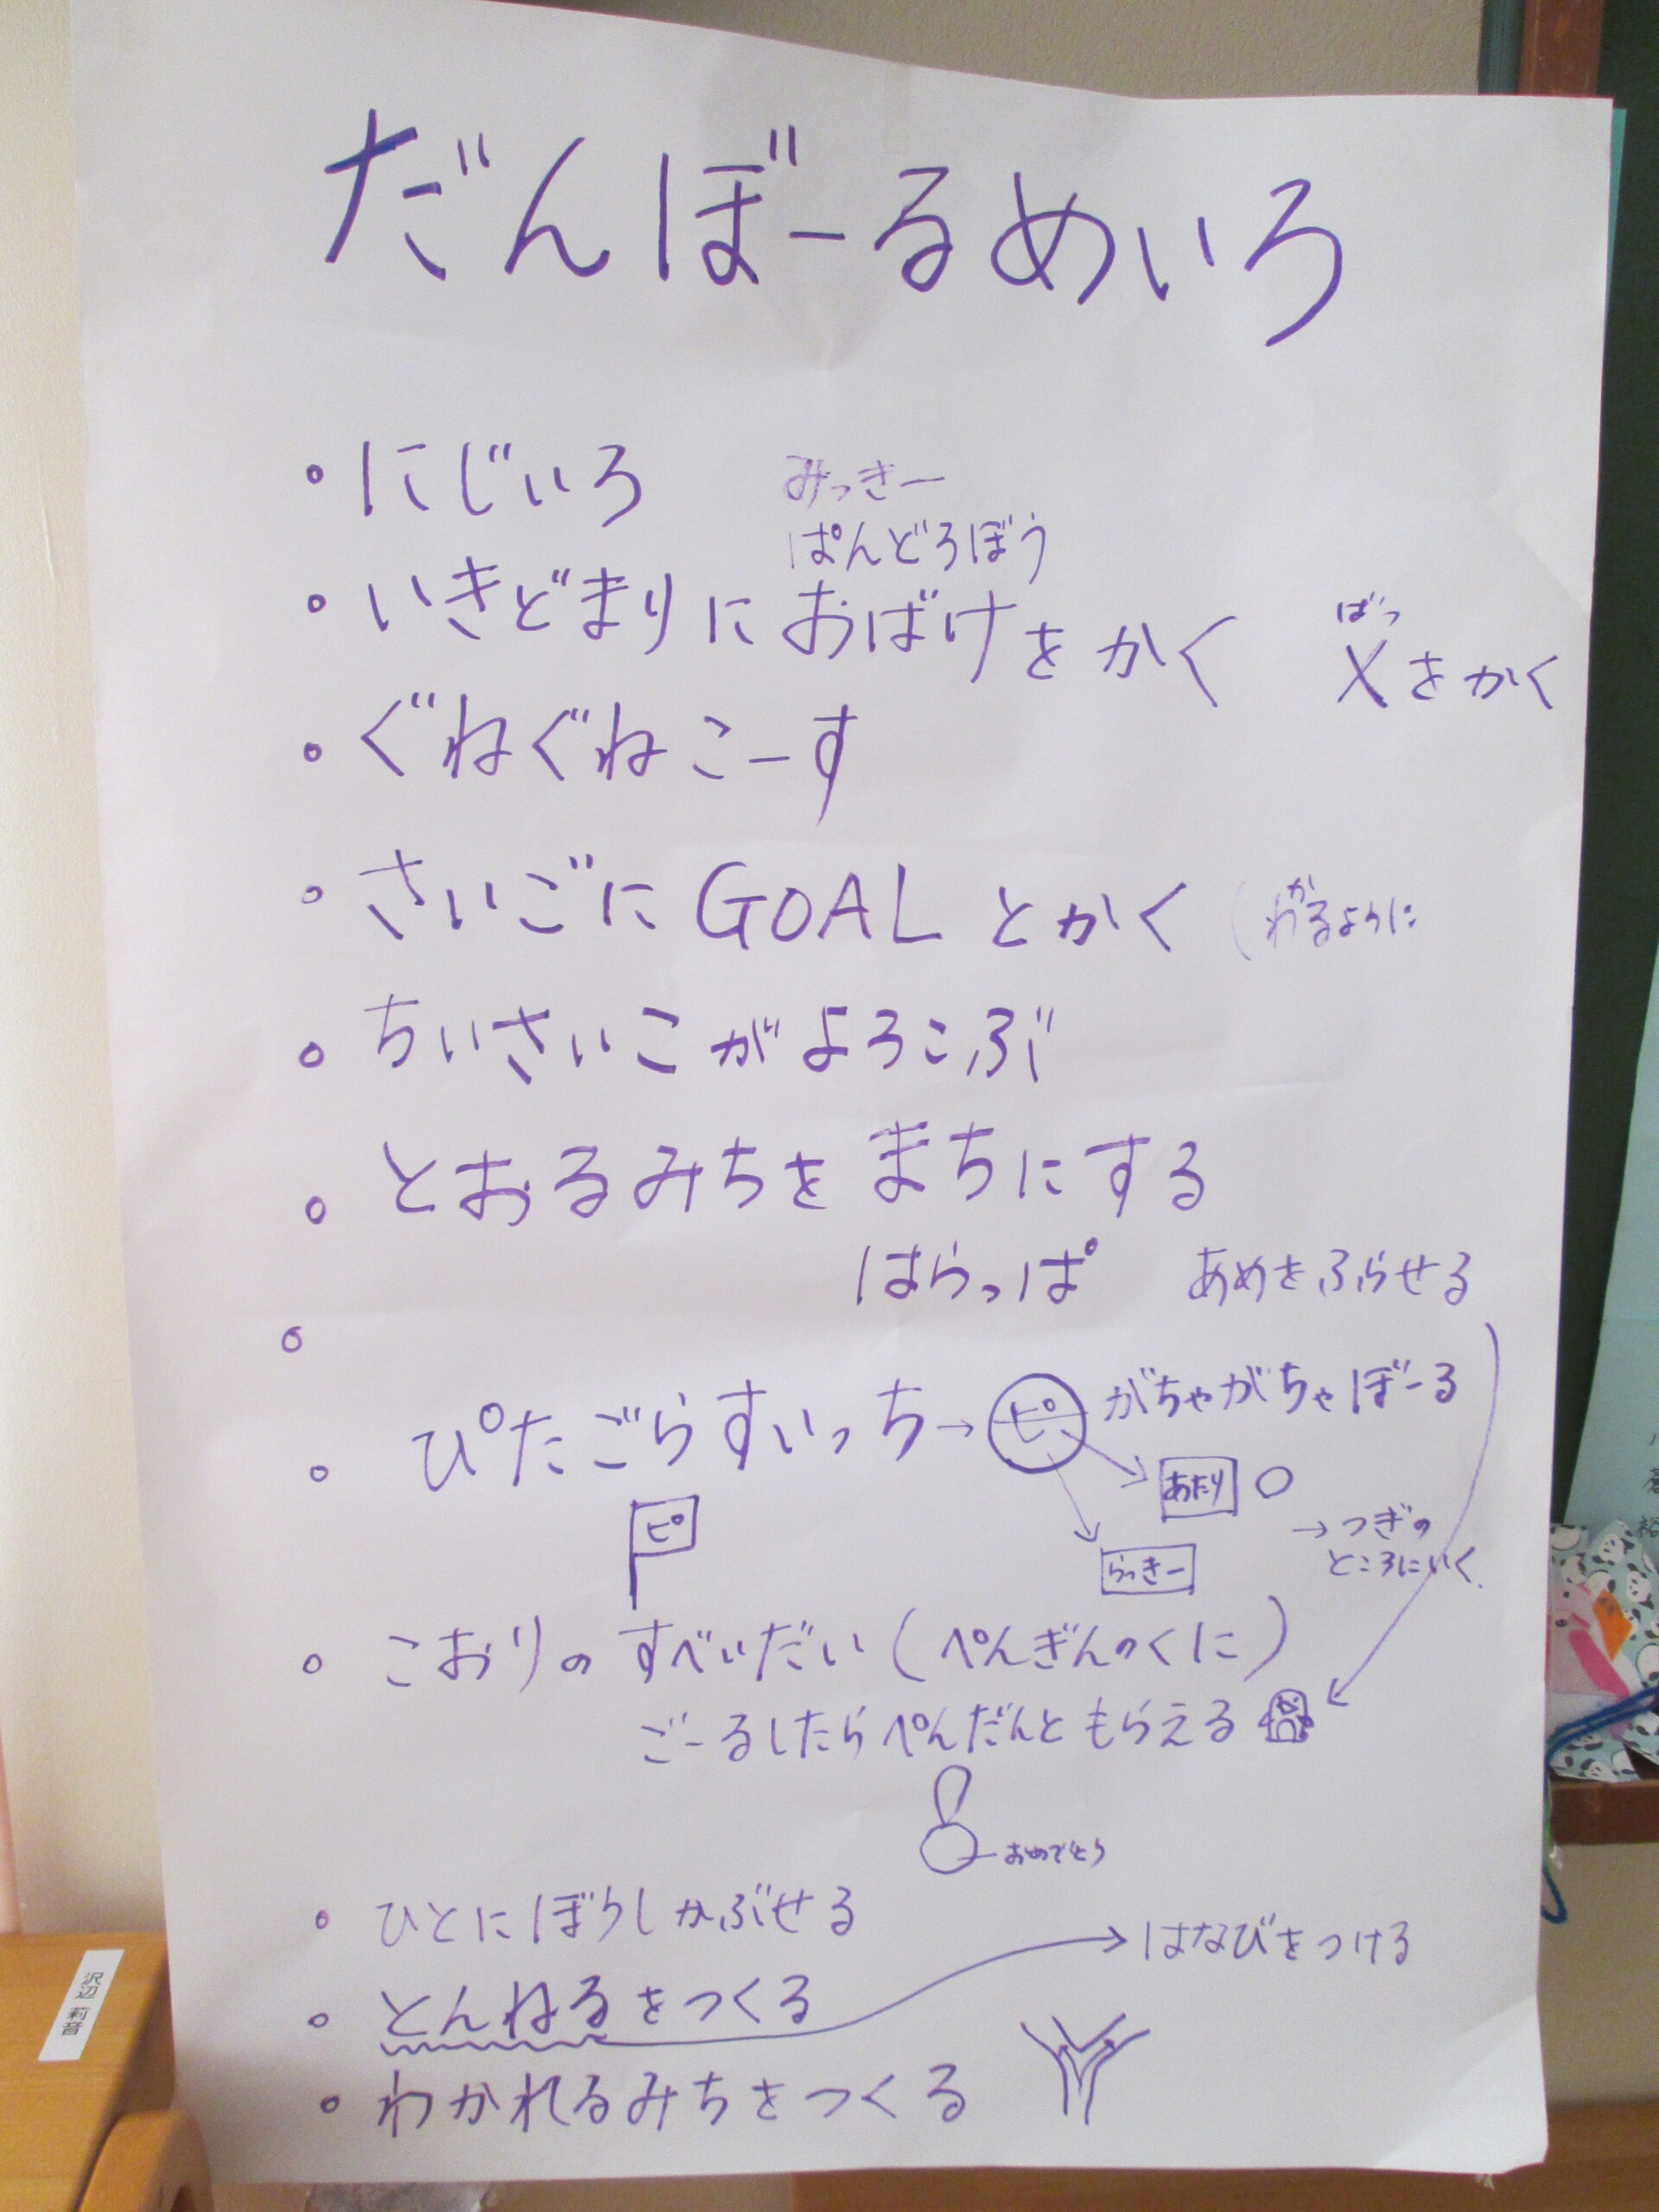 だんぼーるめいろ
・にじいろ
みっきー
ぱんどろぼう
・いきどまりにおばけをかく
ばつ
Xをかく
・ぐねぐねこーす
・さいごにGOALとかく
(わかるように
・ちいさいこがよろこぶ
・とおるみちをまちにする
はらっぱ
あめをふらせる
・ぴたごらすいっち→ピ がちゃがちゃぼーる
あたり ○
らっきー
→つぎの
ところにいく
ピ
・こおりのすべいだい(ぺんぎんのくに)
ごーるしたらぺんだんともらえる
おめでとう
・ひとにぼうしかぶせる
・とんねるをつくる
→はなびをつける
・わかれるみちをつくる
沢辺 莉音